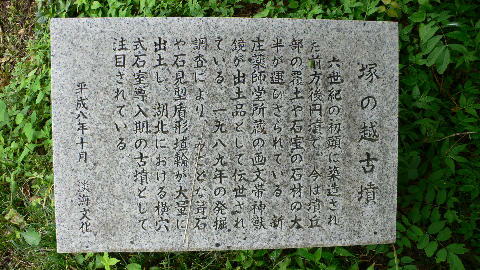 塚の越古墳
六世紀の初頭に築造され
た前方後円墳で、今は墳丘
部の盛土や石室の石材の大
半が運びさられている。新
庄薬師堂所蔵の画文帯神獣
鏡が出土品として伝世され
ている。一九八九年の発掘
調査により、みごとな葺石
や石見型盾形埴輪が大量に
出土し、湖北における横穴
式石室導入期の古墳として
注目されている。
平成八年十月 淡海文化